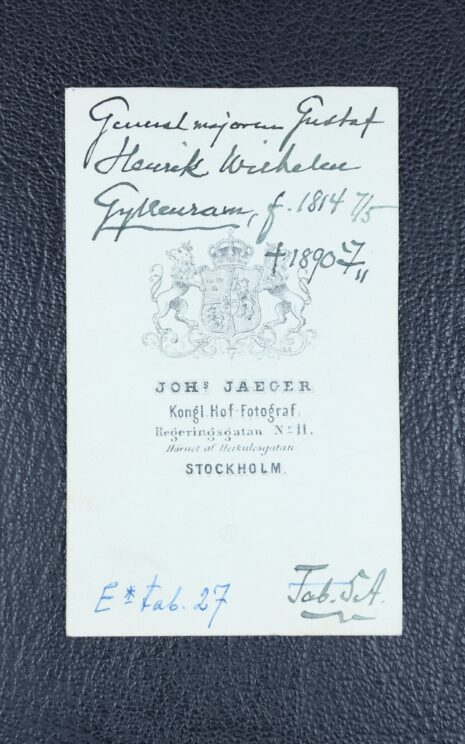 Generalmajoren Gustaf
Henrik Wilhelm
Gyllenram, f. 1814 7/5
† 1890 7/11
JOHS JAEGER
Kongl. Hof-Fotograf.
Regeringsgatan No 11.
Hörnet af Herkulesgatan
STOCKHOLM.
E* tab. 27
Tab. 5A.